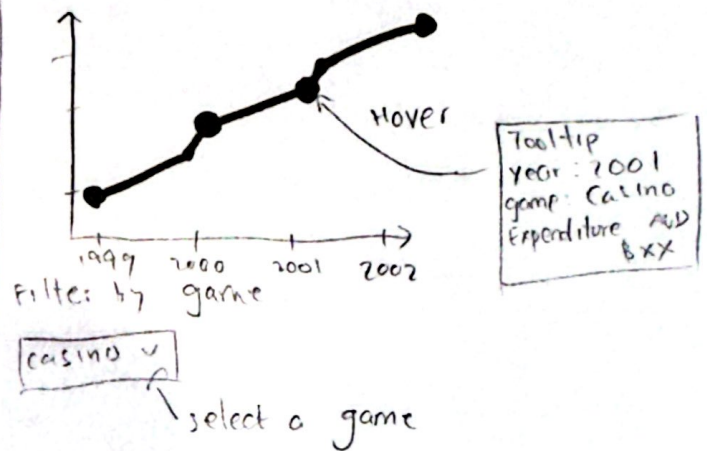 Hover
Tooltip
year : 2001
game: Casino
Expenditure AUD
$XX
1999 2000 2001 2002
Filter by game
casino v
select a game